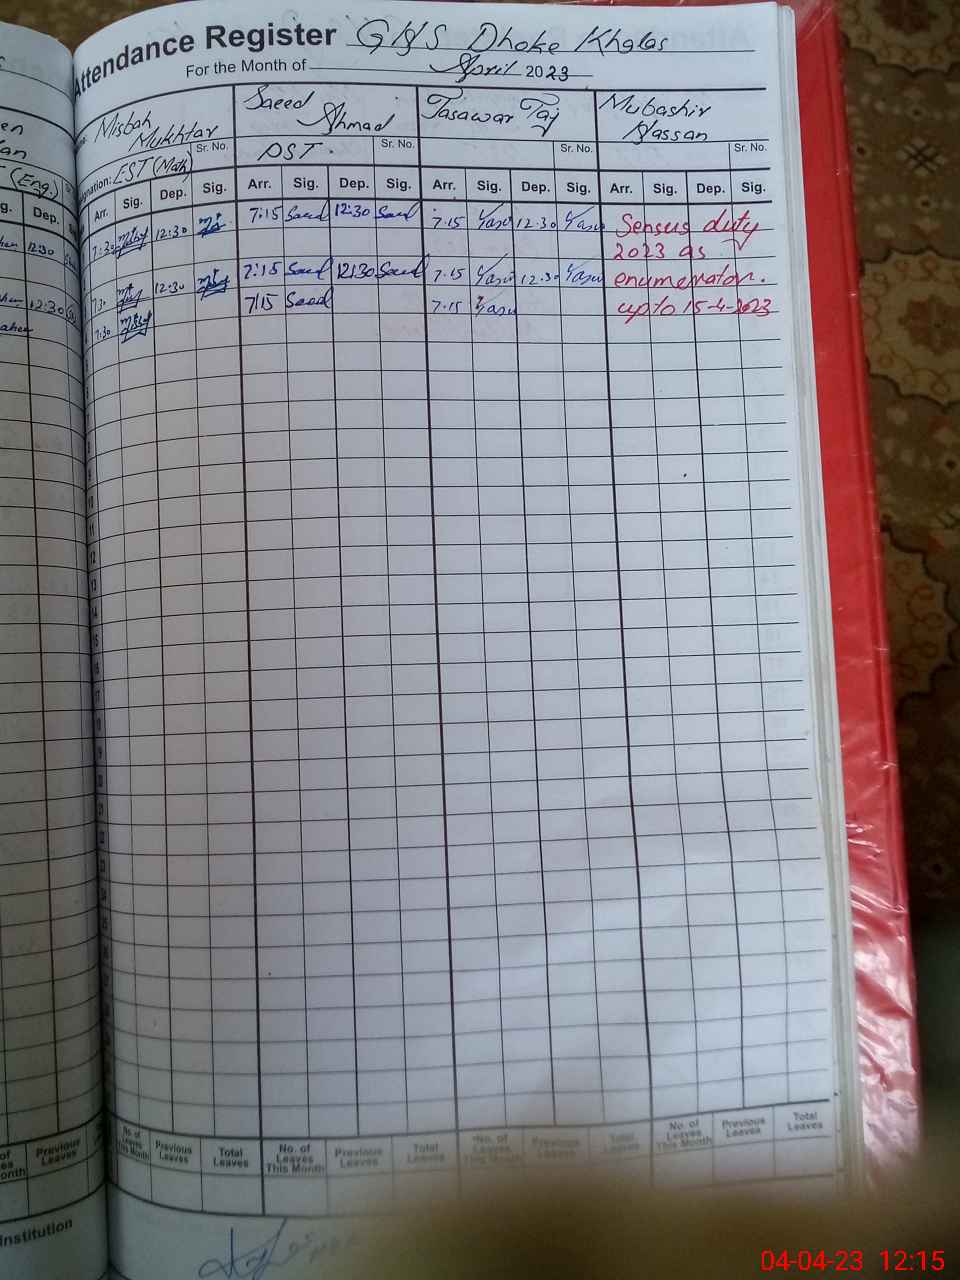 Attendance Register GHS Dhoke Khalas
For the Month of April 2023
Misbah Mukhtar
Saeed Ahmad
Tasawar Taj
Mubashir Hassan
EST (Math) Sr. No.
PST. Sr. No.
Sr. No.
Sr. No.
(Eng.)
Arr. Sig. Dep. Sig. Arr. Sig. Dep. Sig. Arr. Sig. Dep. Sig. Arr. Sig. Dep. Sig.
Dep.
12:30
7:30 12:30 7:15 Saeed 12:30 Saeed 7.15 12.30 Sensus duty
2023 as
12:30
7:30 12:30 7:15 Saeed 12:30 Saeed 7.15 12.30 enumerator.
7:30 7:15 Saeed 7.15 upto 15-4-2023
No. of Leaves This Month Previous Leaves Total Leaves No. of Leaves This Month Previous Leaves Total Leaves No. of Leaves This Month Previous Leaves Total Leaves No. of Leaves This Month Previous Leaves Total Leaves
Previous Leaves
Institution
04-04-23 12:15